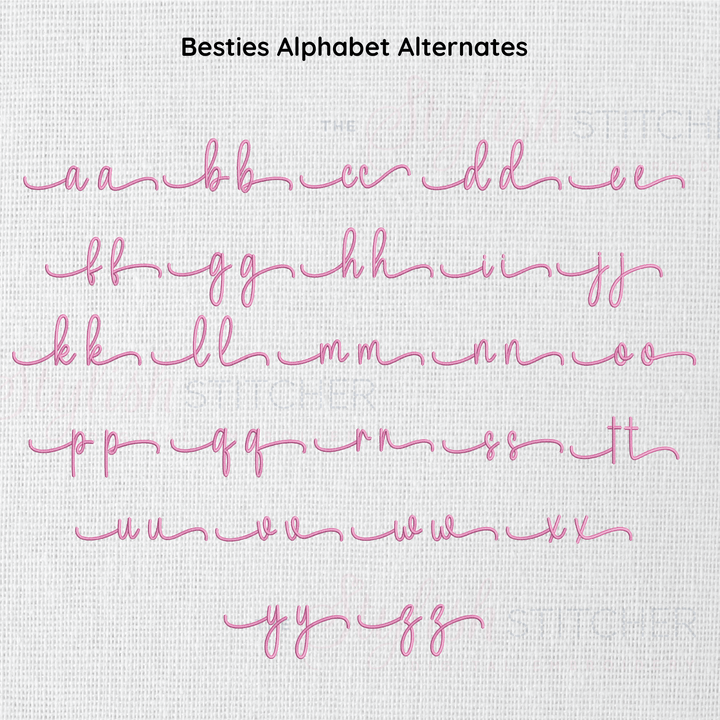 Besties Alphabet Alternates
THE STITCH
aa bb cc dd ee
ff gg hh ii jj
kk ll mm nn oo
STITCHER
pp qq rr ss tt
uu vv ww xx
yy zz
STITCHER